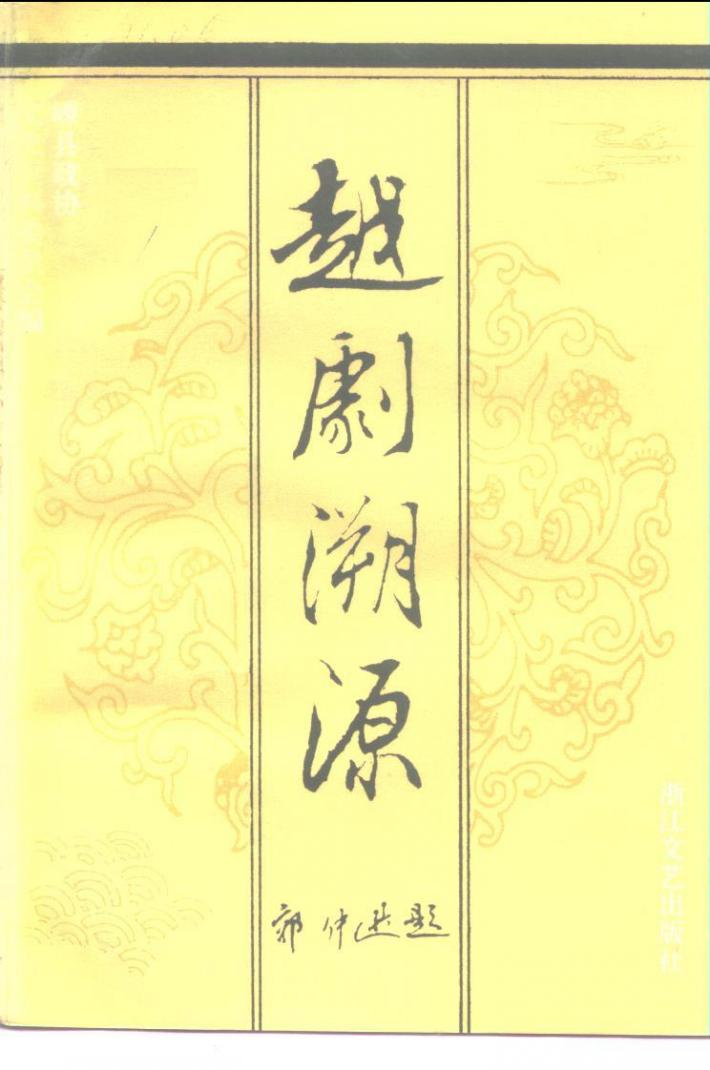 越劇溯源
郭仲选题
嵊县政协
浙江文艺出版社